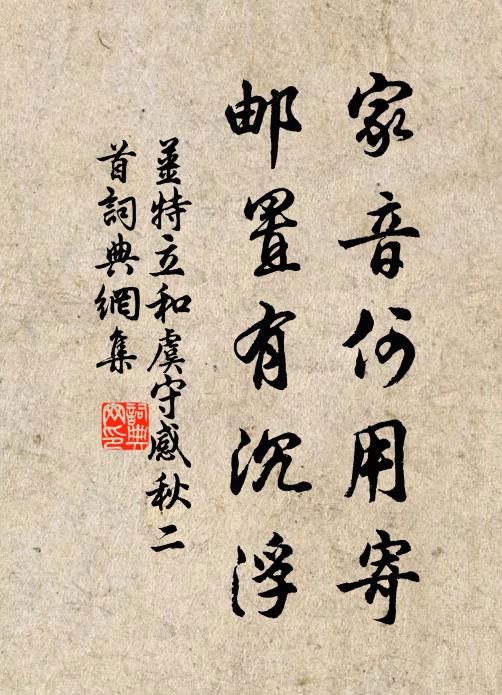 家音何用寄
邮置有沉浮
姜特立和虞守感秋二
首詞典網集
詞典网印